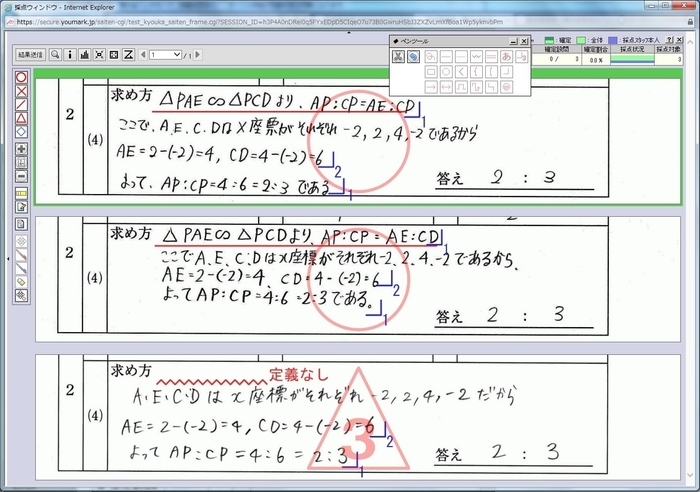 採点ウィンドウ - Internet Explorer
ペンツール
結果送信
:確定 :全体 :採点スタッフ本人 ?
確定設問 確定割合 採点状況 採点対象
0 / 3 00% 3
2
(4)
求め方 △PAE∽△PCDより、AP:CP=AE:CD 1
ここで、A、E、C、Dはx座標がそれぞれ-2,2,4,-2であるから
AE=2-(-2)=4, CD=4-(-2)=6 2
よって、AP:CP=4:6=2:3である 1
答え 2 : 3
2
(4)
求め方 △PAE∽△PCDより、AP:CP=AE:CD 1
ここでA、E、C、Dはx座標がそれぞれ-2、2、4、-2であるから、
AE=2-(-2)=4、CD=4-(-2)=6 2
よってAP:CP=4:6=2:3である。 1
答え 2 : 3
2
(4)
求め方
定義なし
A、E、C、Dはx座標がそれぞれ-2,2,4,-2だから
AE=2-(-2)=4, CD=4-(-2)=6 2
よってAP:CP=4:6=2:3 1
3
答え 2 : 3